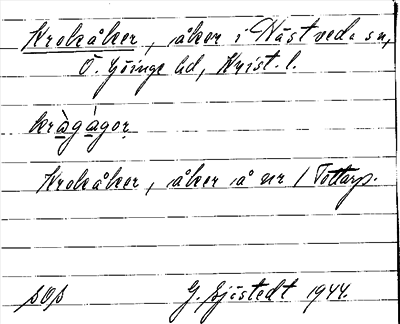 Krokåker, åker i Hästveda sn,
Ö. Göinge hd, Krist. l.
kràgàgor
Krokåker, åker å nr 1 Tottarp.
SOS G. Sjöstedt 1944.